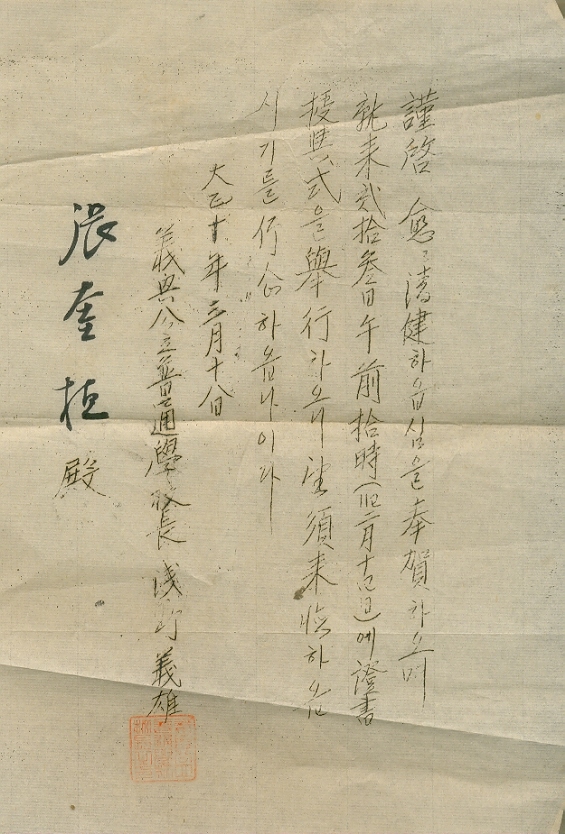 謹啓 愈〻淸健하읍심을奉賀하오며
就來貳拾叁日午前拾時(旧二月十四日)에證書
授與式을擧行하오니 須來臨하읍
시기를伏企하읍나이다
大正十年三月十八日
義興公立普通學校長 浅野義雄
張奎桓 殿